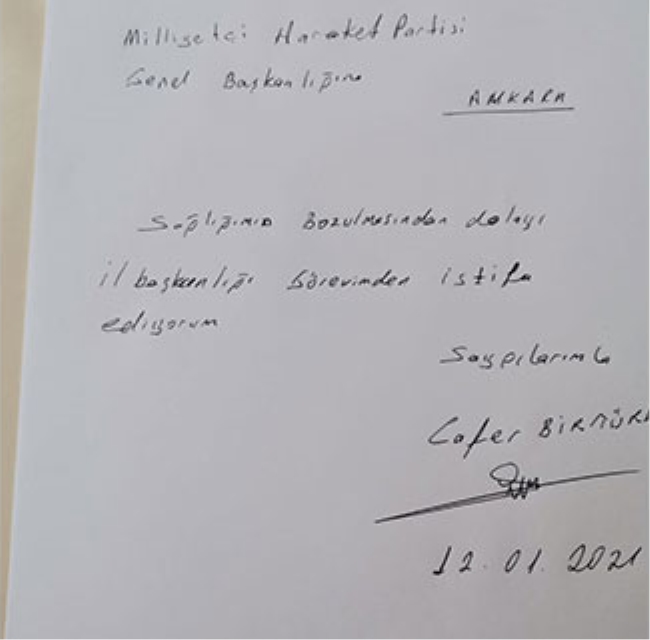 Milliyetçi Hareket Partisi
Genel Başkanlığına
ANKARA
Sağlığımın Bozulmasından dolayı
il başkanlığı Görevimden istifa
ediyorum
Saygılarımla
Cafer
12.01.2021